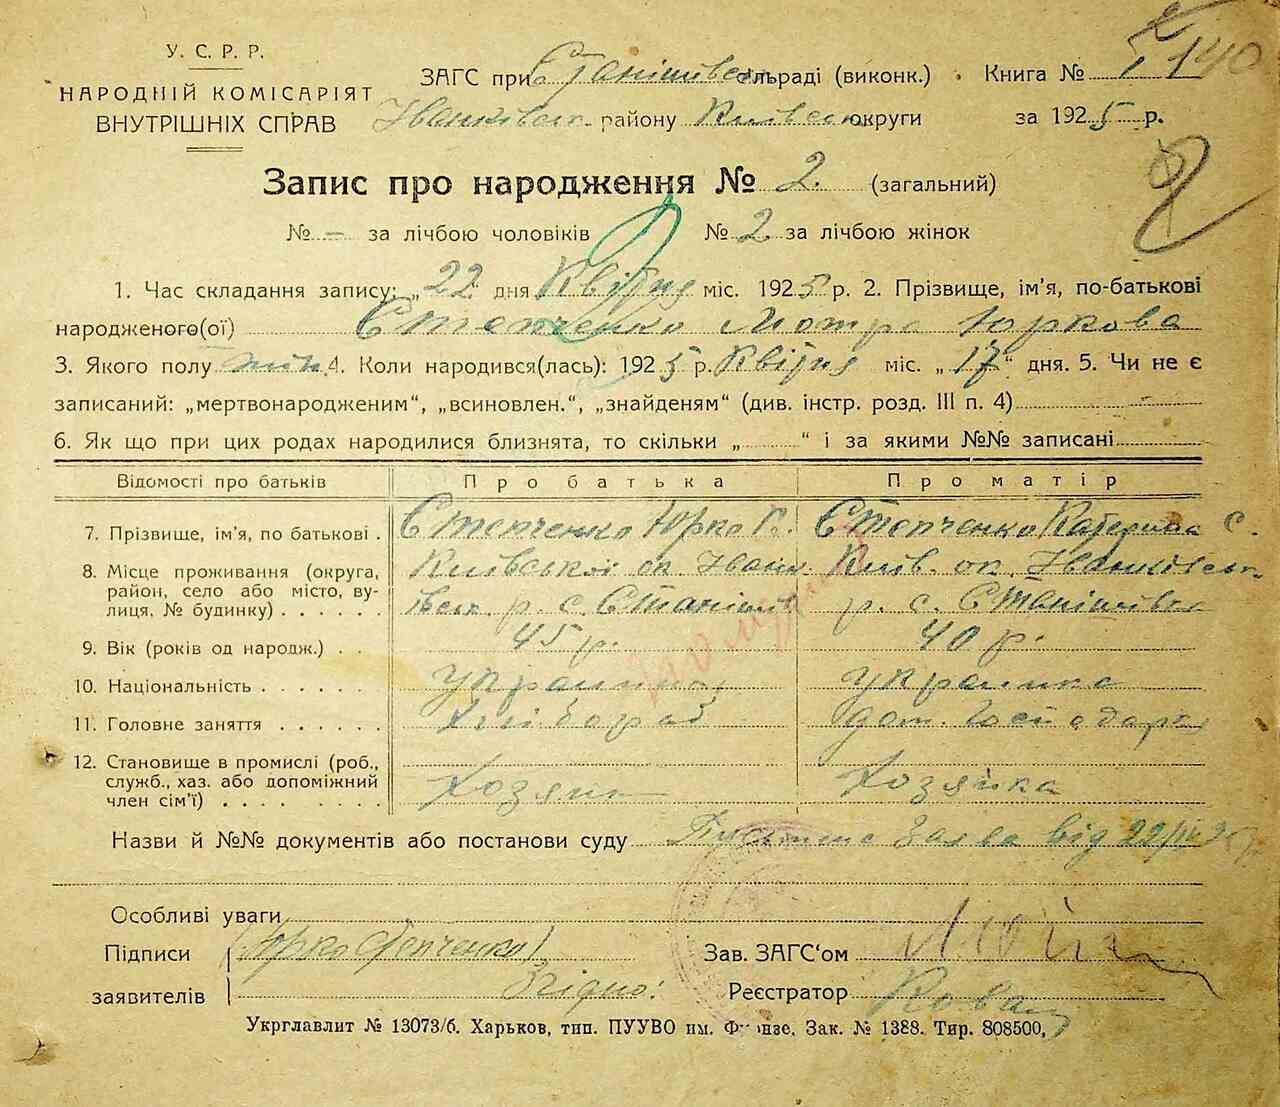 У. С. Р. Р.
НАРОДНІЙ КОМІСАРІЯТ
ВНУТРІШНІХ СПРАВ
ЗАГС при Станішівськ сільраді (виконк.)
Книга № 1 140
Іванківськ. району Київськ округи за 1925 р.
Запис про народження № 2. (загальний)
2
№ – за лічбою чоловіків № 2 за лічбою жінок
1. Час складання запису: „22 дня Квітня міс. 1925 р. 2. Прізвище, ім'я, по-батькові
народженого(ої) Степченко Мотра Юркова
3. Якого полу жін. 4. Коли народився(лась): 1925 р. Квітня міс. „17“ дня. 5. Чи не є
записаний: „мертвонародженим“, „всиновлен.“, „знайденям“ (див. інстр. розд. III п. 4)
6. Як що при цих родах народилися близнята, то скільки „ “ і за якими №№ записані
Відомості про батьків Про батька Про матір
7. Прізвище, ім'я, по батькові . Степченко Юрко Степченко Катерина С.
8. Місце проживання (округа, Київської ок. Іванк Київ. ок. Іванківськ
район, село або місто, ву- івськ р. с. Станішів р. с. Станішівка
лиця, № будинку) . . . . .
9. Вік (років од народж.) . . 45 р. 40 р.
10. Національність . . . . . . українец українка
11. Головне заняття . . . . . . Хлібороб дом. Господарка
12. Становище в промислі (роб.,
служб., хаз. або допоміжний Хозяин Хозяйка
член сім'ї) . . . . . . . .
Назви й №№ документів або постанови суду Письменна заява від 22/IV 25
Особливі уваги
Підписи | Юрко Степченко Зав. ЗАГС‘ом
заявителів | Згідно: Реєстратор
Укрглавлит № 13073/б. Харьков, тип. ПУУВО им. Фрунзе, Зак. № 1388. Тир. 808500,